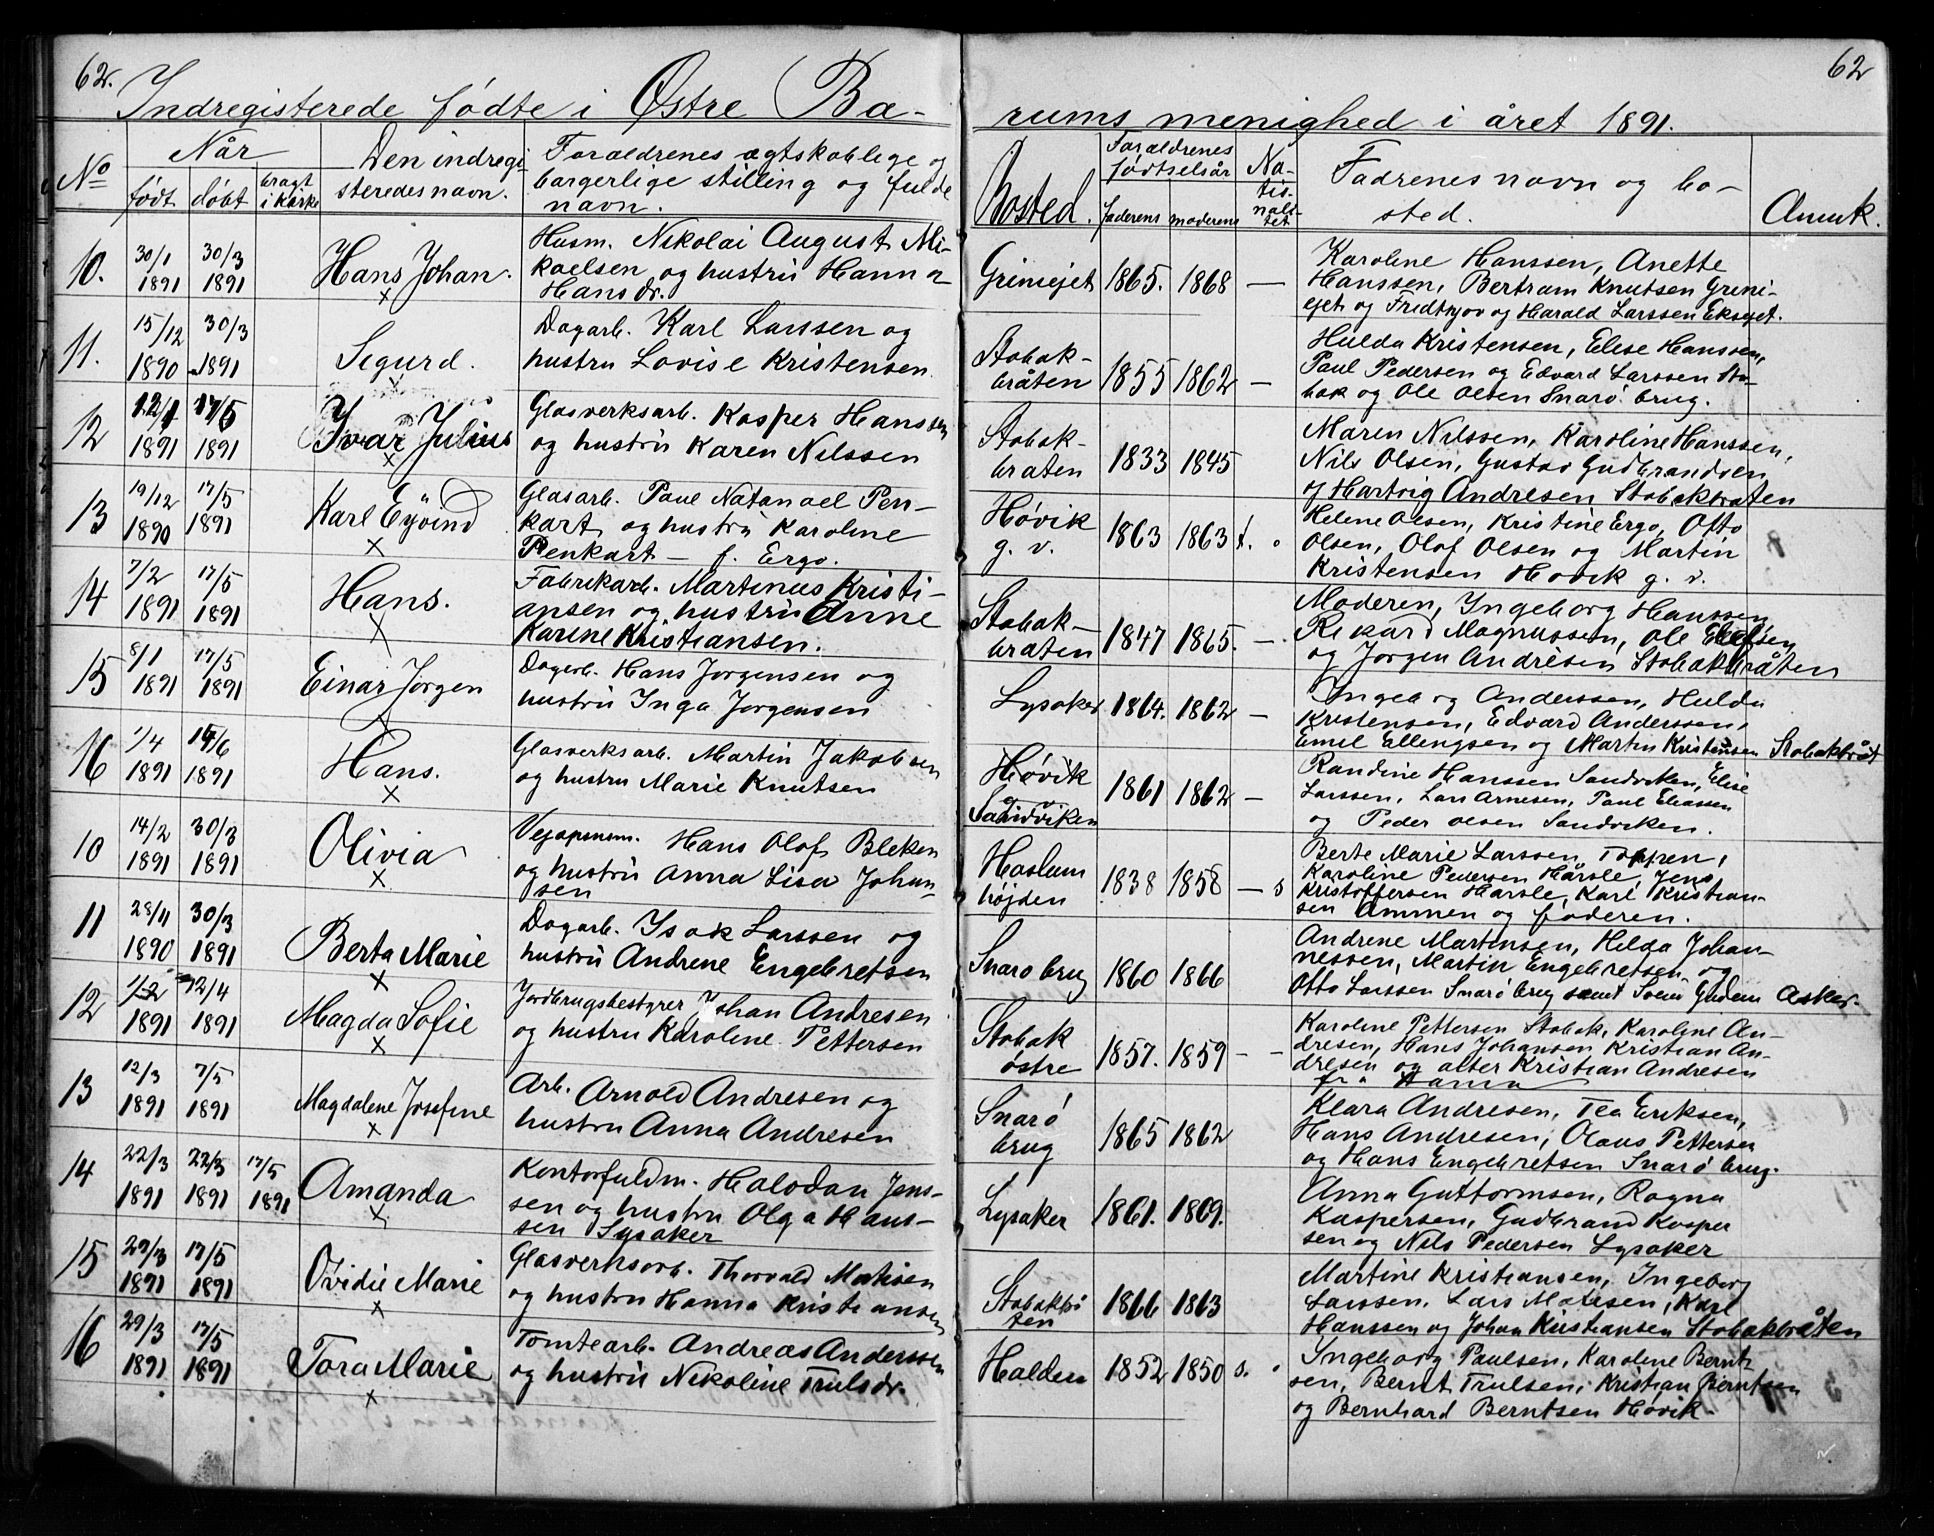 62.
Indregisterede fødte i Østre Ba-
No
Når
født
døbt
bragt i kirke
Den indregi
steredes navn.
Forældrenes ægtskablige og
borgerlige stilling og fulde
navn.
10.
30/1 1891
30/3 1891
Hans Johan.
Husm. Nikolai August Mi-
kaelsen og hustru Hanna
Hansdr.
11.
15/12 1890
30/3 1891
Sigurd.
Dagarb. Karl Larssen og
hustru Lovise Kristensen
12
1891
17/5 1891
Ivar Julius
Glasverksarb. Kasper Hanssen
og hustru Karen Nilssen
13
19/12 1890
17/5 1891
Karl Eyvind
Glasarb. Paul Natanael Pen-
kart og hustru Karoline
Penkart - f. Ergo.
14
7/2 1891
17/5 1891
Hans.
Fabrikarb. Martinus Kristi-
ansen og hustru Anne
Karine Kristiansen.
15
8/1 1891
17/5 1891
Einar Jørgen
Dagarb. Hans Jørgensen og
hustru Inga Jørgensen
16
1/4 1891
14/6 1891
Hans.
Glasverksarb. Martin Jakobsen
og hustru Marie Knutsen
10
14/2 1891
30/3 1891
Olivia
Vejopsynsm. Hans Olaf Bleken
og hustru Anna Lisa Johan-
sen
11
28/11 1890
30/3 1891
Berta Marie
Dagarb. Isak Larssen og
hustru Andrene Engebretsen
12
1/2 1891
12/4 1891
Magda Sofie
Jordbrugsbestyrer Johan Andresen
og hustru Karoline Pettersen
13
12/3 1891
7/5 1891
Magdalene Josefine
Arb. Arnold Andresen og
hustru Anna Andresen
14
22/3 1891
22/3 1891
17/5 1891
Amanda
Kontorfuldm. Halvdan Jens-
sen og hustru Olga Hans-
sen Lysaker
15
29/3 1891
17/5 1891
Ovidie Marie
Glasverksarb. Thorvald Matisen
og hustru Hanna Kristiansen
16
29/3 1891
17/5 1891
Tora Marie
Tomtearb. Andreas Anderssen
og hustru Nikoline Trulsdr.
62
rums menighed i året 1891.
Bosted.
Forældrenes
fødtselsår
faderens
moderens
Na-
tio-
nali-
tet
Fadrenes navn og bo-
sted.
Anmk.
Griniejet 1865. 1868 —
Karoline Hanssen, Anette
Hanssen, Bertram Knutsen Grini-
ejet og Fredtjov og Harald Larssen Eksejet.
Stabæk-
bråten 1855 1862 —
Hulda Kristensen, Elise Hanssen,
Paul Pedersen og Edvard Larssen Sta-
bæk og Ole Olsen Snarø brug.
Stabæk-
bråten 1833 1845
Maren Nilssen, Karoline Hanssen,
Nils Olsen, Gustav Gudbrandsen
og Hartvig Andresen Stabækbråten
Høvik
g. v. 1863 1863 f.
Helene Olsen, Kristine Ergo, Otto
Olsen, Olaf Olsen og Martin
Kristensen Høvik g. v.
Stabæk-
bråten 1847 1865. —
Moderen, Ingeborg Hanssen,
Rikard Magnussen, Ole Ellefsen
og Jørgen Andresen Stabækbråten
Lysaker 1864. 1862 —
Ingeborg Anderssen, Hulda
Kristensen, Edvard Anderssen,
Emil Ellingsen og Martin Kristensen Stabækbråt
Høvik
Sandviken 1861 1862 —
Randine Hanssen Sandviken, Elise
Larssen, Lars Arnesen, Paul Eliassen
og Peder Olsen Sandviken.
Haslum
højden 1838 1858 — s
Berte Marie Larssen Toppen,
Karoline Pedersen Harsle, Jens
Kristoffersen Harsle, Karl Kristian-
sen Ammen og faderen.
Snarø brug 1860 1866
Andrene Martinsen, Hilda Johan-
nessen, Martin Engebretsen og
Otto Larssen Snarø brug samt Svein Gudem Asker.
Stabæk
østre 1857. 1859 - -
Karoline Pettersen Stabæk, Karoline An-
dresen, Hans Johansen Kristian An-
dresen og atter Kristian Andresen
Snarø
brug 1865 1862
Klara Andresen, Tea Eriksen,
Hans Andresen, Olaus Pettersen
og Hans Engebretsen Snarø brug.
Lysaker 1861. 1869.
Anna Guttormsen, Ragna
Kaspersen, Gudbrand Kasper
sen og Nils Pedersen Lysaker
Stabækbrå
ten 1866 1863
Martine Kristiansen, Ingeborg
Larssen, Lars Matisen, Karl
Hanssen og Johan Kristiansen Stabækbråten
Halden 1852 1850 s.
Ingeborg Paulsen, Karoline Bernt
sen, Bernt Trulsen, Kristian Berntsen
og Bernhard Berntsen Høvik.